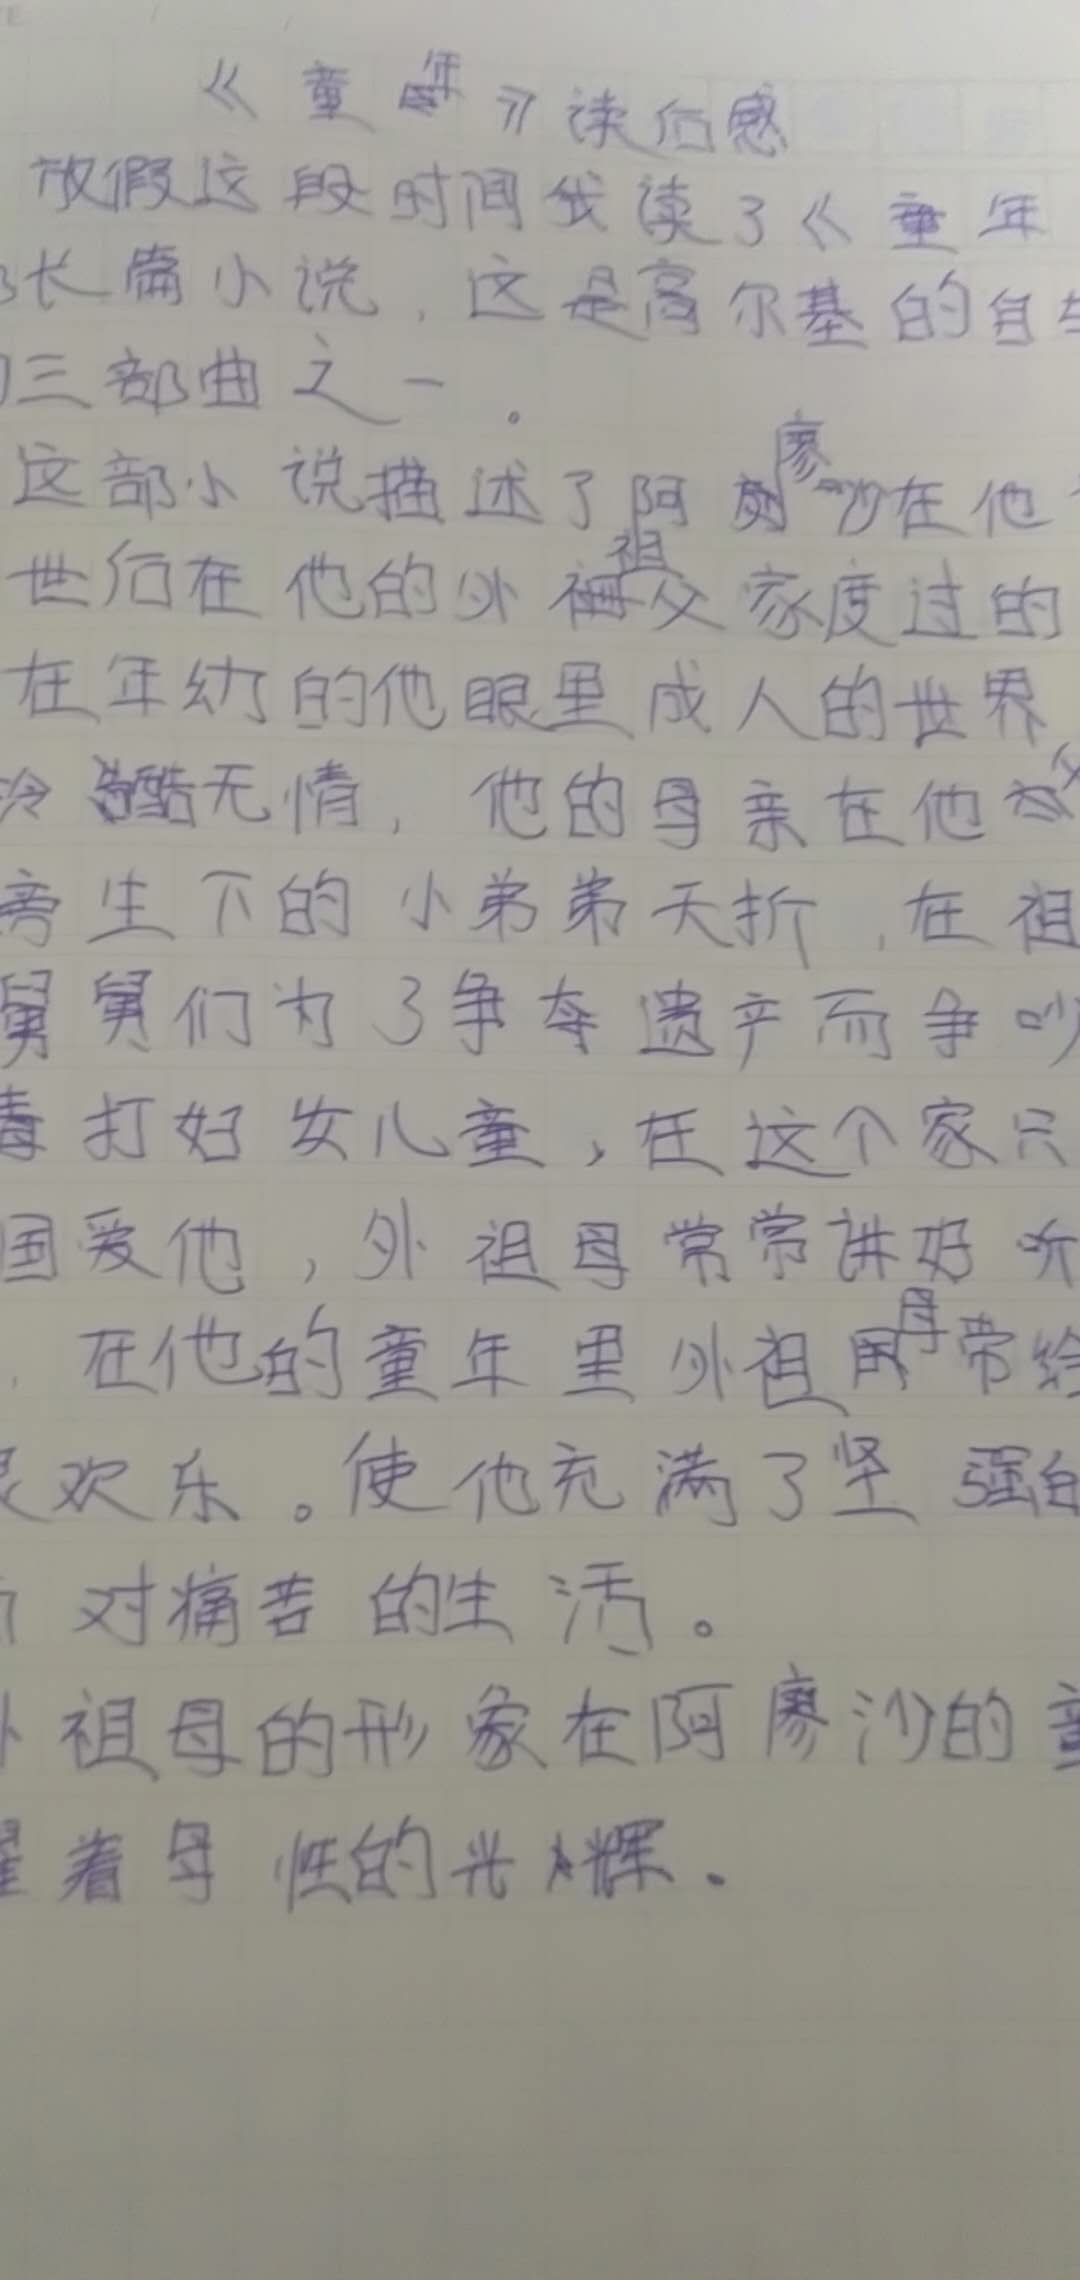 《童年》读后感
放假这段时间我读了《童年
长篇小说，这是高尔基的自
三部曲之一。
这部小说描述了阿廖沙在他
世后在他的外祖父家度过的
在年幼的他眼里成人的世界
冷酷无情，他的母亲在他父
旁生下的小弟弟夭折，在祖
舅舅们为了争夺遗产而争吵
毒打妇女儿童，在这个家只
国爱他，外祖母常常讲好听
在他的童年里外祖母带给
欢乐。使他充满了坚强的
对痛苦的生活。
祖母的形象在阿廖沙的童
着母性的光辉。